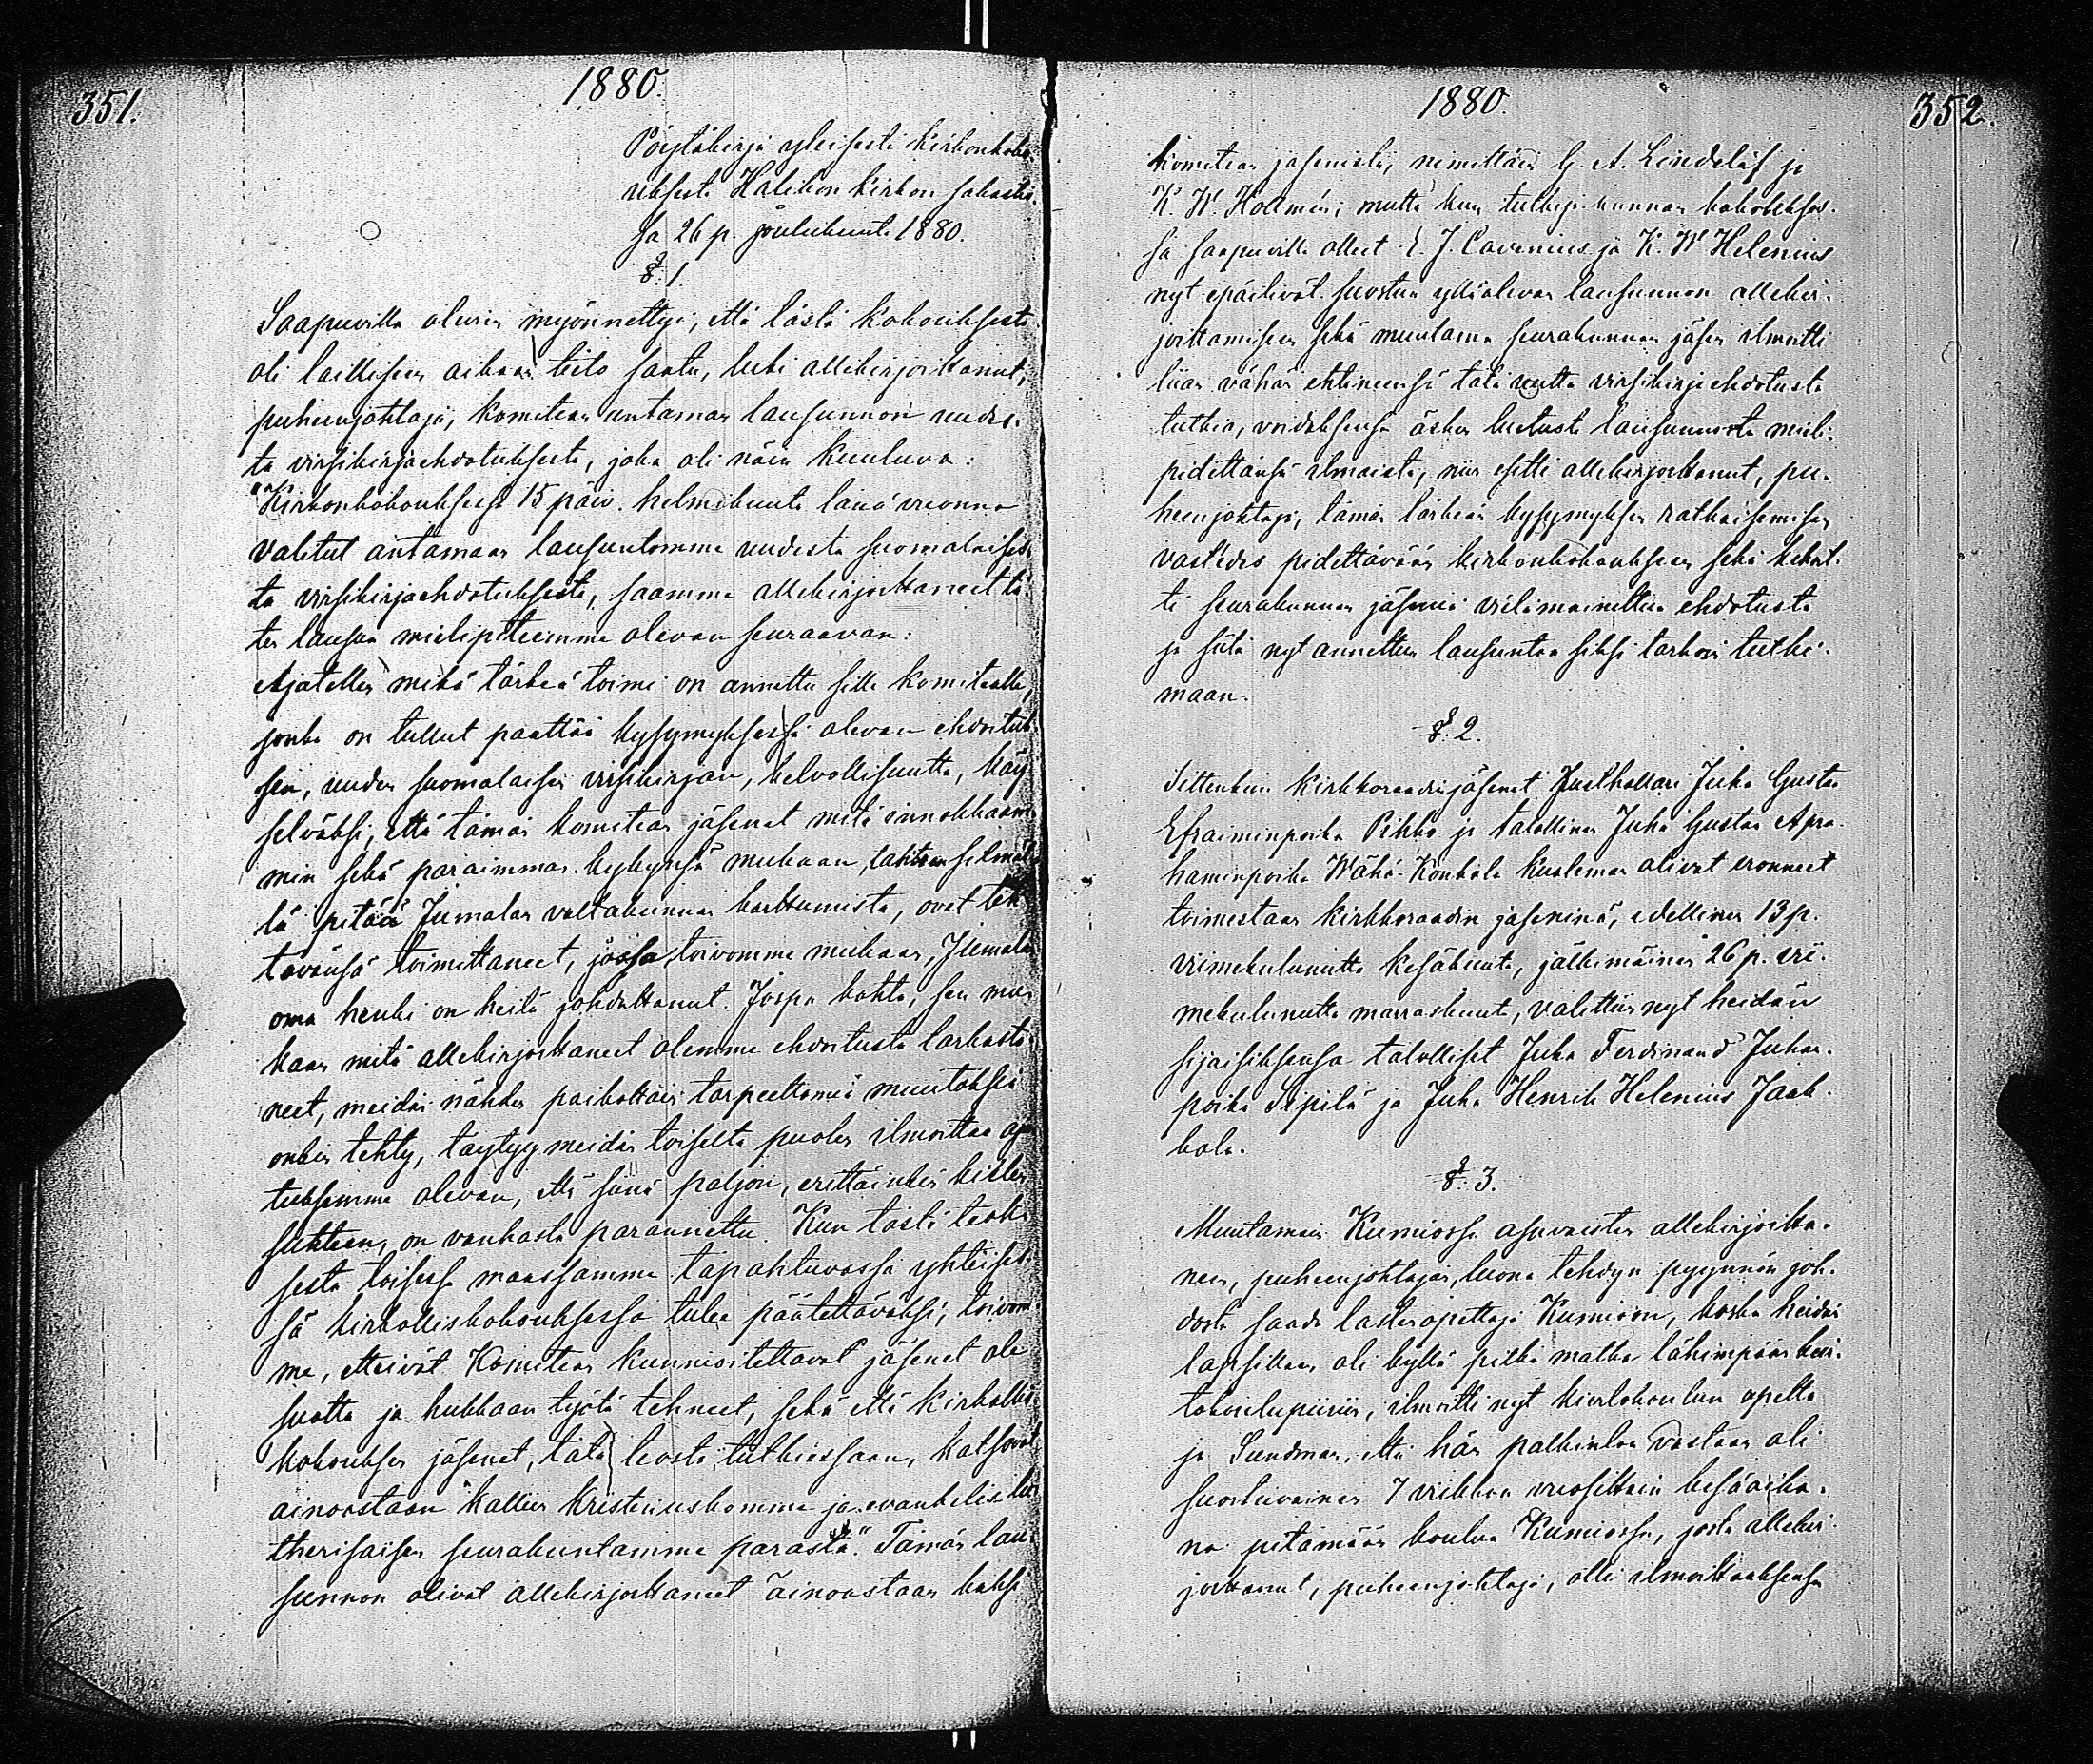 351.
1880.
Pöytäkirja yleisestä kirkonkoko-
uksesta Halikon kirkon sakastis-
sa 26 p. joulukuuta 1880.
§. 1.
Saapuvilla olevin myönnettyä, että tästä kokouksesta
oli laillisen aikaan tieto saatu, luki allekirjoittanut,
puheenjohtaja, komitean antaman lausunnon uudes-
ta virsikirjaehdotuksesta, joka oli näin kuuluva:
"Kirkonkokouksessa 15 päiv. helmikuuta tänä vuonna
valitut antamaan lausuntomme uudesta suomalaises-
ta virsikirjaehdotuksesta, saamme allekirjoittaneet tä-
ten lausua mielipiteemme olevan seuraavan:
Ajatellen mikä tärkeä toimi on annettu sille komitealle,
jonka on tullut päättää kysymyksessä olevan ehdotuk-
sen, uuden suomalaisen virsikirjan, kelvollisuutta, käy
selväksi, että tämän komitean jäsenet mitä innokkaam-
min sekä paraimman kykynsä mukaan, tahtoen silmäl-
lä pitää Jumalan valtakunnan karttumista, ovat teh-
tävänsä toimittaneet, jossa, toivomme mukaan, Jumalan
oma henki on heitä johdattanut. Jospa kohta, sen mu-
kaan mitä allekirjoittaneet olemme ehdotusta tarkasta-
neet, meidän nähden paikottain tarpeettomia muutoksia
onkin tehty, täytyy meidän toiselta puolen ilmoittaa aja-
tuksemme olevan, että siinä paljon, erittäinkin kielen
suhteen, on vanhasta parannettu. Kun tästä teok-
sesta toisessa maassamme tapahtuvassa yhteises-
sä kirkolliskokouksessa tulee päätettäväksi, toivom-
me, etteivät Komitean kunnioitettavat jäsenet ole
suotta ja hukkaan työtä tehneet, sekä että kirkollis-
kokouksen jäsenet, tätä teosta tutkiessaan, katsovat
ainoastaan kalliin kristinuskomme ja evankelis lu-
therisaisen seurakuntamme parasta." Tämän lau-
sunnon olivat allekirjoittaneet ainoastaan kaksi
1880.
352.
komitean jäsenistä, nimittäin G. A. Lindelöf ja
K. W. Hollmén; mutta kun tutkijakunnan kokouksessa
sa saapuvilla olleet E. J. Cavenius ja K. W Helenius
nyt epäilivät suostua ylläolevan lausunnon allekir-
joittamiseen sekä muutama seurakunnan jäsen ilmoitti
liian vähän ehtineensä tätä uutta virsikirjaehdotusta
tutkia, voidaksensa äsken luetusta lausunnosta mieli-
pidettänsä ilmaista, niin esitti allekirjoittanut, pu-
heenjohtaja, tämän tärkeän kysymyksen ratkaisemisen
vastedes pidettävään kirkonkokoukseen sekä kehoit-
ti seurakunnan jäseniä viimemainittua ehdotusta
ja siitä nyt annettua lausuntoa siksi tarkoin tutki-
maan.
§. 2.
Sittenkuin kirkkoraadin jäsenet Rusthollari Juha Gustaa
Efraiminpoika Pihko ja talollinen Juha Gustaa Apra-
haminpoika Wähä-Konkola kuoleman olivat eronneet
toimestaan kirkkoraadin jäseninä, edellinen 13 p.
viimekulunutta kesäkuuta, jälkimäinen 26 p. vii-
mekulunutta marraskuuta, valittiin nyt heidän
sijaisiksensa talolliset Juha Ferdinand Juhan-
poika Sipilä ja Juha Henrik Helenius Jaak-
kola.
§. 3.
Muutamain Kumiossa asuvaisten allekirjoitta-
neen, puheenjohtajan, luona tehdyn pyynnön joh-
dosta saada lastenopettaja Kumioon, koska heidän
lapsillaan oli kyllä pitkä matka lähimpään kier-
tokoulupiiriin, ilmoitti nyt kiertokoulun opetta-
ja Sundman, että hän palkintoa vastaan oli
suostuvainen 7 viikkoa vuosittain kesäaika-
na pitämään koulua Kumiossa, josta allekir-
joittanut, puheenjohtaja, otti ilmoittaaksensa